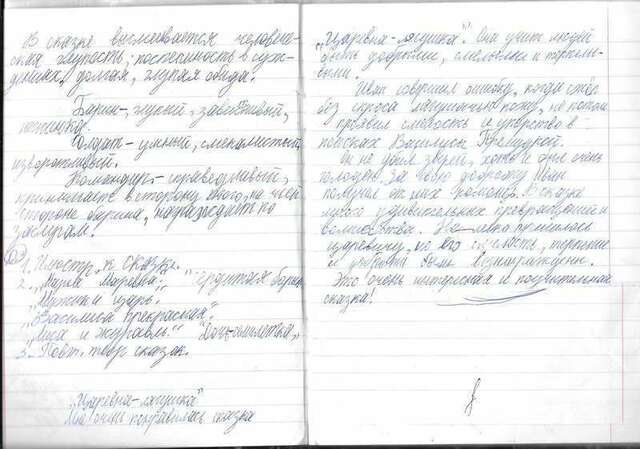 В сказке высмеивается человече-
ская глупость, поспешность в суж-
дениях, долгая, глупая обида.
Барин - глупый, завистливый,
Солдат - умный, смекалистый,
изворотливый.
Командир - справедливый,
принимает в сторону того, на чьей
стороне барина, награждает по
заслугам.
1. Иллюстр. к сказке.
2. „Марья Маревна", „Сердитая барыня"
„Мужик и царь".
„Василиса Прекрасная".
„Лиса и журавль"
3. Повт. твор сказок.
„Царевна-лягушка"
Мне очень понравилась сказка
„Царевна-лягушка". Она учит людей
быть добрыми, смелыми и терпели-
выми.
Иван совершил ошибку, когда сжёг
без спроса лягушачью кожу, но потом
проявил смелость и упорство в
поисках Василисы Премудрой.
Он не убил зверей, хотя и был очень
голоден. За свою доброту Иван
получил от них помощь. В сказке
много удивительных превращений и
волшебства. Не легко пришлось
царевичу, но его смелость, терпение
и доброта были вознаграждены.
Это очень интересная и поучительная
сказка!